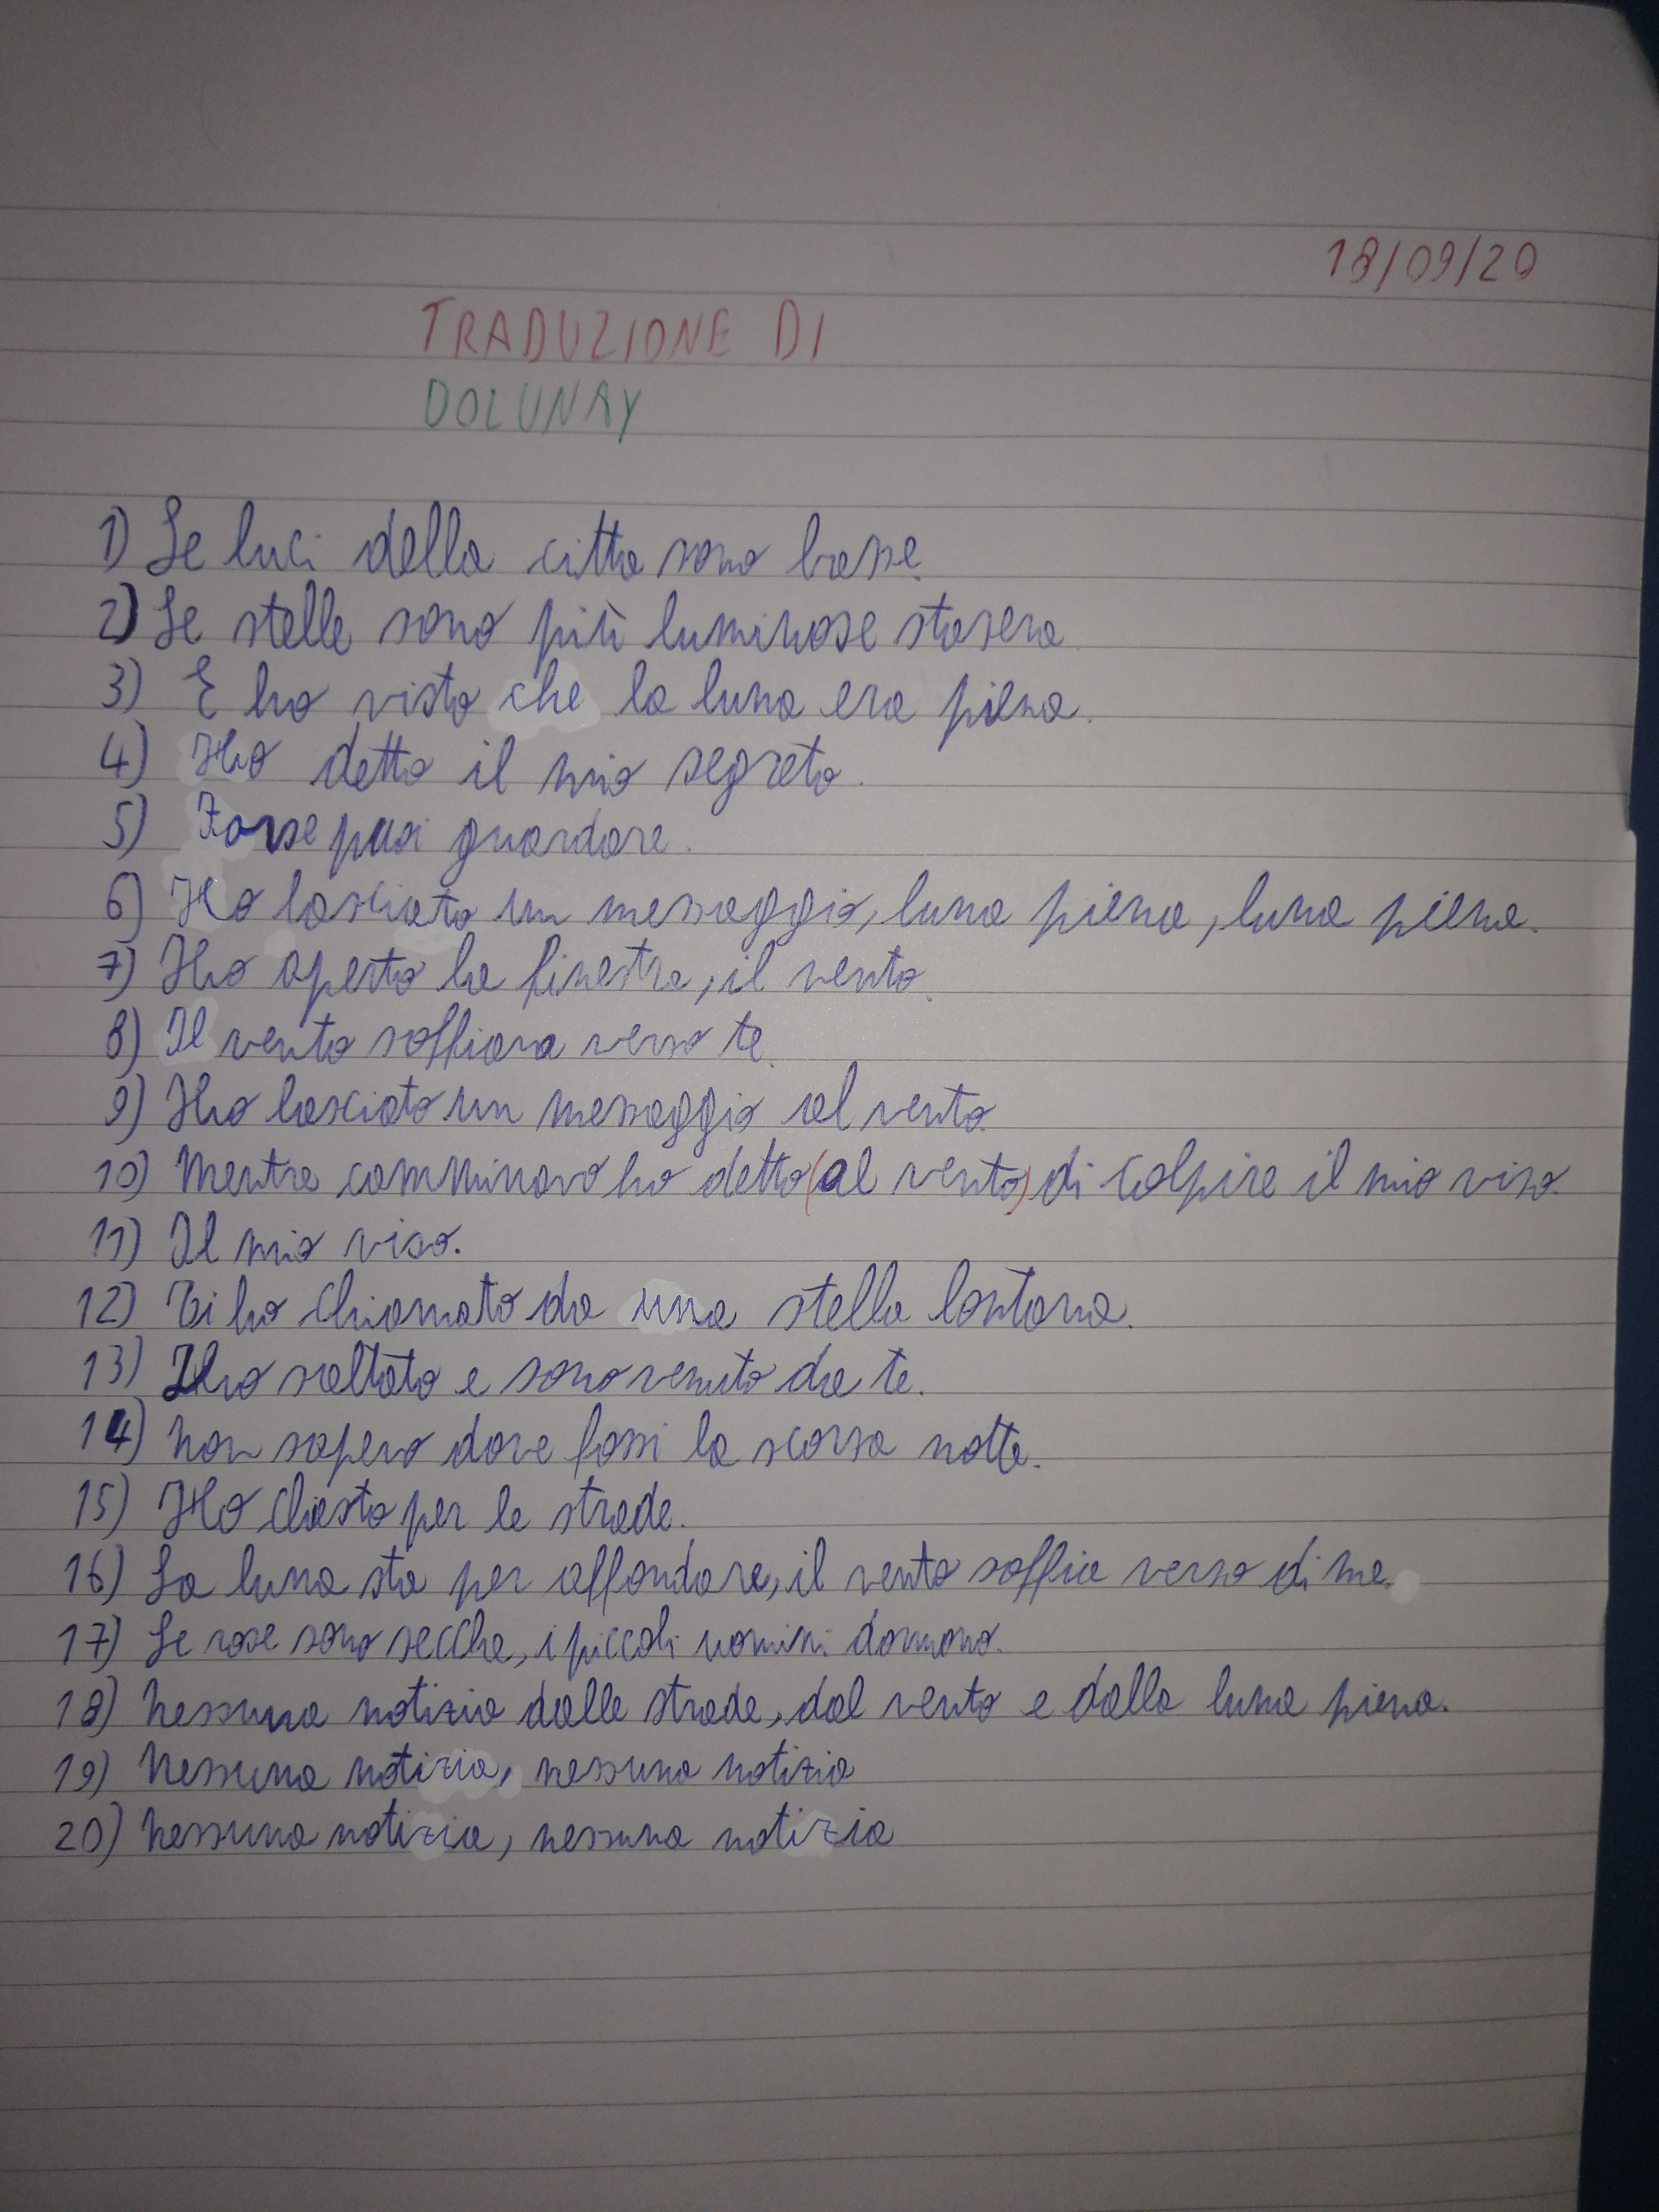 18/09/20
TRADUZIONE DI
DOLUNAY
1) Le luci della citta sono basse.
2) Le stelle sono più luminose stasera.
3) E ho visto che la luna era piena.
4) Ho detto il mio segreto.
5) Forse puoi guardare.
6) Ho lasciato un messaggio, luna piena, luna piena.
7) Ho aperto la finestra, il vento.
8) Il vento soffiava verso te.
9) Ho lasciato un messaggio al vento.
10) Mentre camminavo ho detto (al vento) di colpire il mio viso.
11) Il mio viso.
12) Ti ho chiamato da una stella lontana.
13) Ho saltato e sono venuto da te.
14) Non sapevo dove fossi la scorsa notte.
15) Ho chiesto per le strade.
16) La luna sta per affondare, il vento soffia verso di me.
17) Le rose sono secche, i piccoli uomini dormono.
18) Nessuna notizia dalle strade, dal vento e dalla luna piena.
19) Nessuna notizia, nessuna notizia
20) Nessuna notizia, nessuna notizia